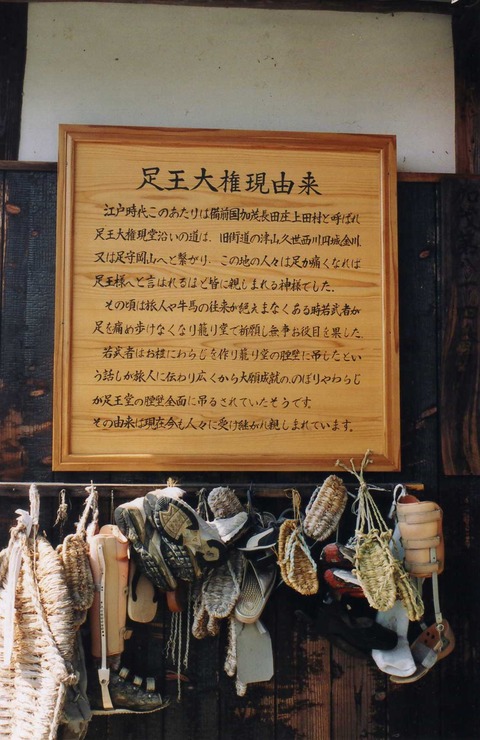 足王大権現由来
江戸時代このあたりは備前国加茂長田庄上田村と呼ばれ
足王大権現堂沿いの道は、旧街道の津山久世西川円城金川、
又は足守岡山へと繋がり、この地の人々は足が痛くなれば
足王様へと言はれるほど皆に親しまれる神様でした。
その頃は旅人や牛馬の往来が絶えまなくある時若武者が
足を痛め歩けなくなり籠り堂で祈願し無事お役目を果した。
若武者はお禮にわらじを作り籠り堂の壁に吊したとい
う話しが旅人に伝わり広くから大願成就の、のぼりやわらじ
が足王堂の壁全面に吊るされていたそうです。
その由来は現在今も人々に受け継がれ親しまれています。